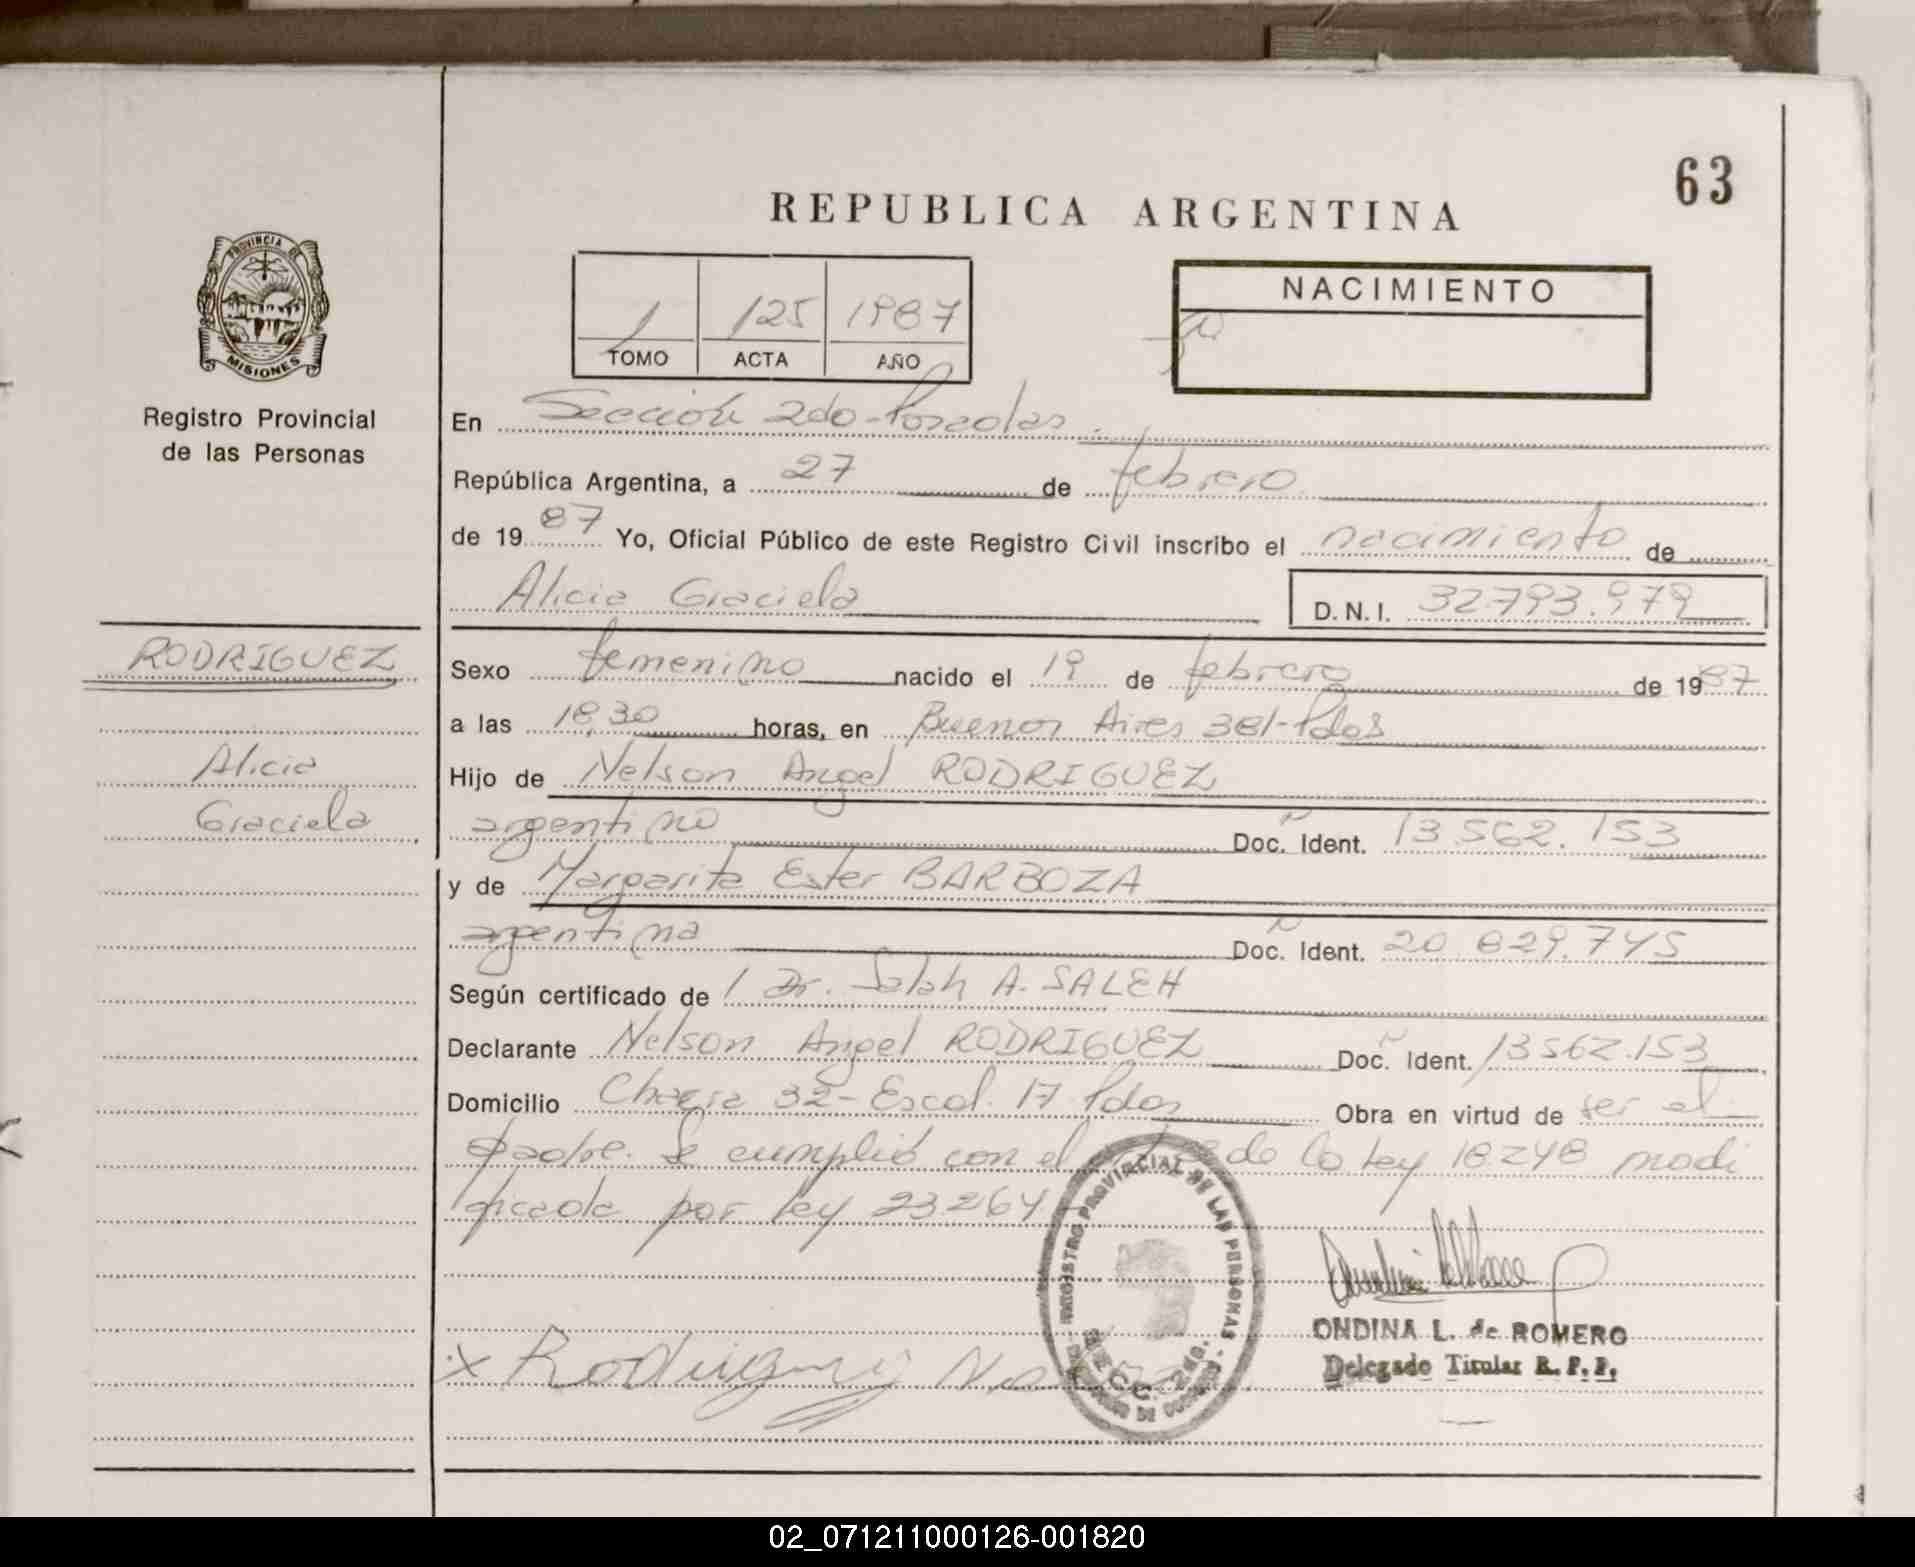 63
REPUBLICA ARGENTINA
PROVINCIA DE
MISIONES
Registro Provincial
de las Personas
1 125 1987
TOMO ACTA AÑO
NACIMIENTO
En Sección 2do-Posadas
República Argentina, a 27 de febrero
de 1987 Yo, Oficial Público de este Registro Civil inscribo el nacimiento de
Alicia Graciela D.N.I. 32.793.979
RODRIGUEZ
Alicia
Graciela
Sexo femenino nacido el 19 de febrero de 1987
a las 18,30 horas, en Buenos Aires 381-Pdas
Hijo de Nelson Angel RODRIGUEZ
argentino Doc. Ident. 13.562.153
y de Margarita Ester BARBOZA
argentina Doc. Ident. 20.829.745
Según certificado de / Dr. Salah A. SALEH
Declarante Nelson Angel RODRIGUEZ Doc. Ident. 13562.153
Domicilio Chacra 32- Escal. 17 Pdas Obra en virtud de ser el
padre. Se cumplió con el de la ley 18.248 modi
ficada por ley 23264
REGISTRO PROVINCIAL DE LAS PERSONAS
ONDINA L. de ROMERO
Delegado Titular R. P. P.
x Rodriguez
02_071211000126-001820